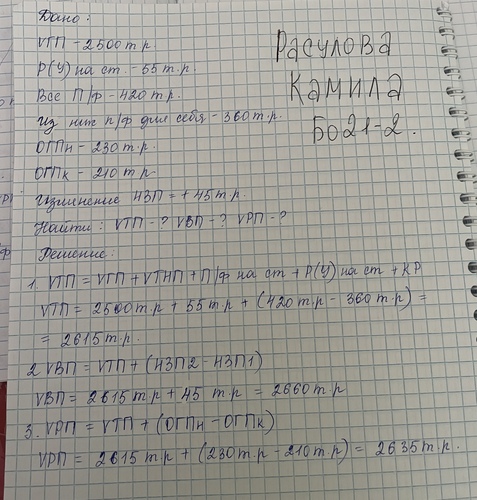 Дано:
VГП - 2500 т.р.
Р(У) на ст. - 55 т.р.
Все П/ф - 420 т.р.
Из них п/ф для себя - 360 т.р.
ОГПн - 230 т.р.
ОГПк - 210 т.р.
Изменение НЗП = + 45 т.р.
Найти: VТП - ? VВП - ? VРП - ?
Решение:
1. VТП = VГП + VТНП + П/ф на ст + Р(У) на ст + КР
VТП = 2500 т.р + 55 т.р + (420 т.р - 360 т.р) =
= 2615 т.р.
2 VВП = VТП + (НЗП2 - НЗП1)
VВП = 2615 т.р + 45 т.р = 2660 т.р
3. VРП = VТП + (ОГПн - ОГПк)
VРП = 2615 т.р + (230 т.р - 210 т.р) = 2635 т.р.
Расулова
Камила
Бо21-2.